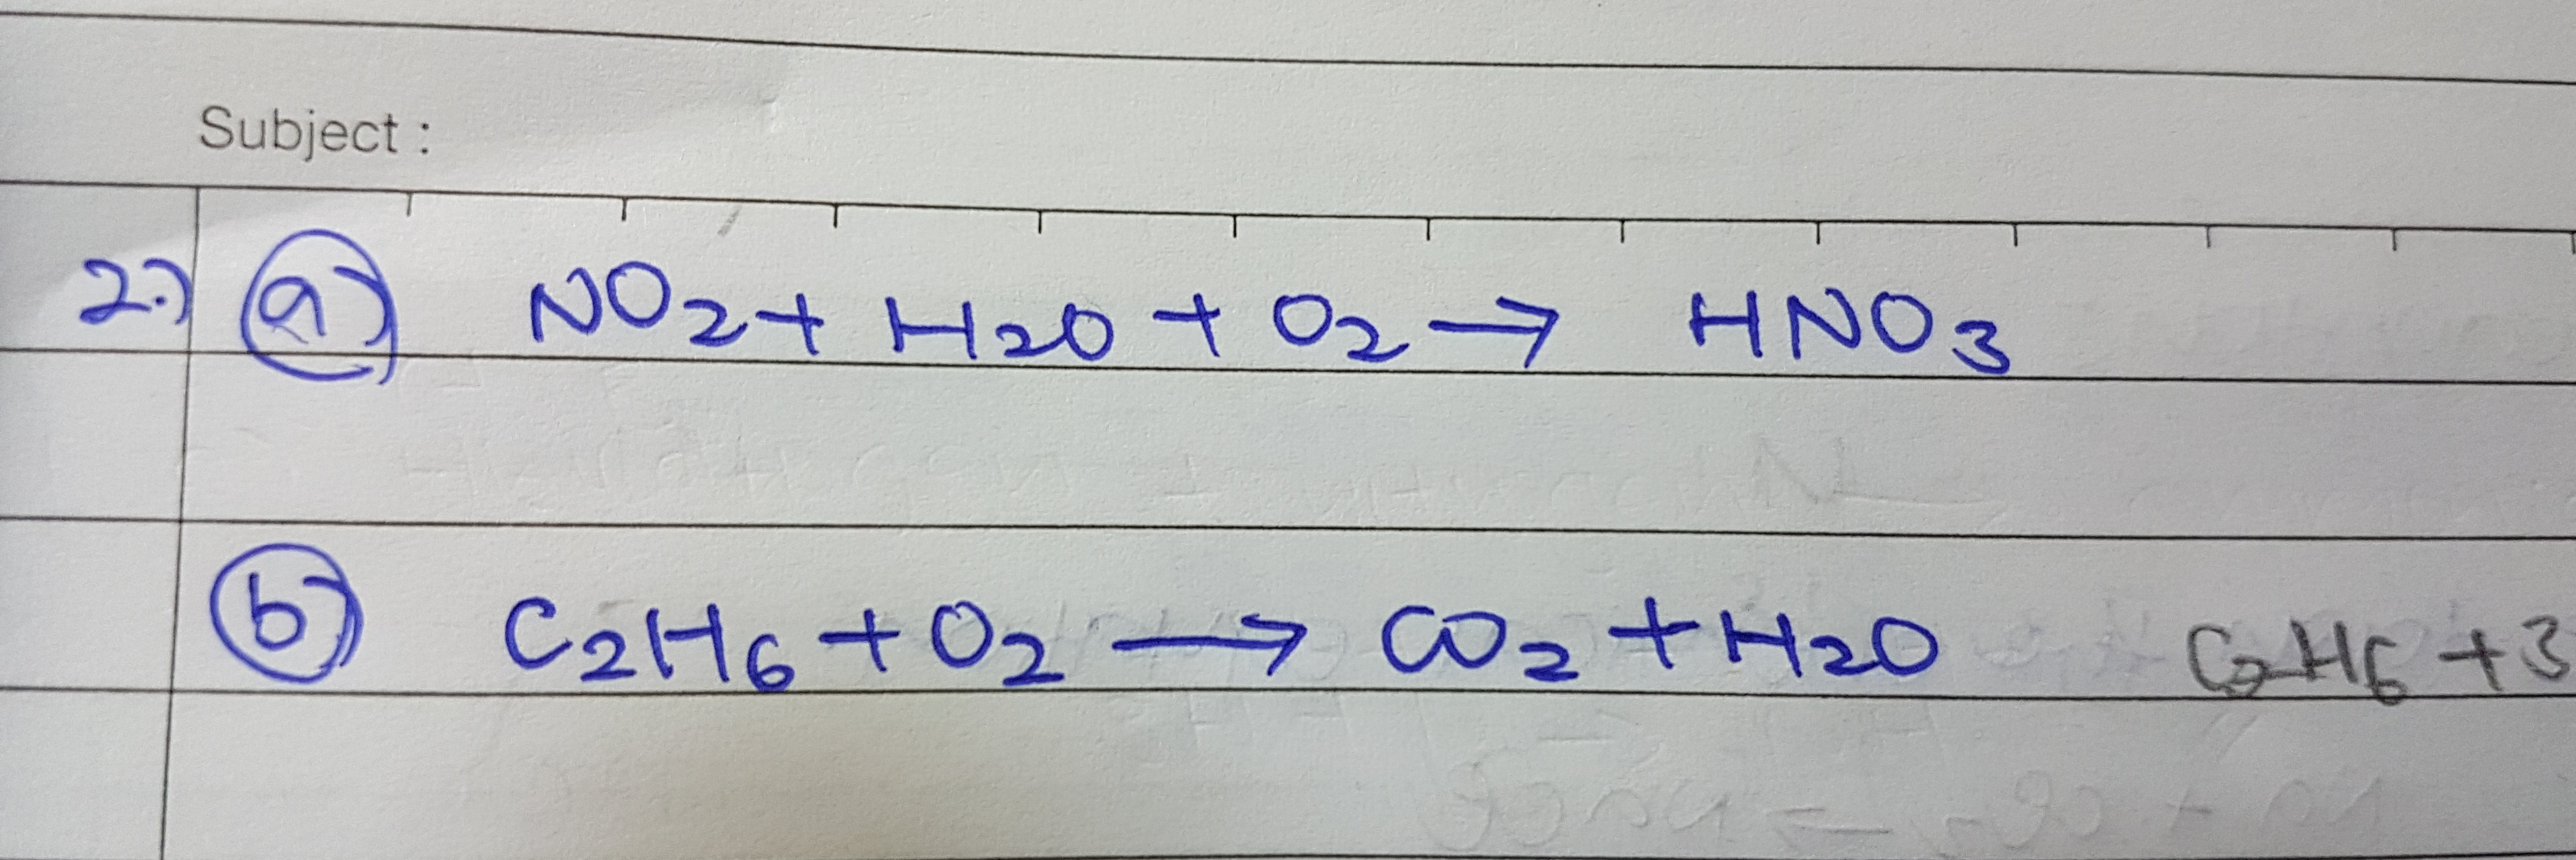 Subject :
2.) a) NO2 + H2O + O2 → HNO3
b) C2H6 + O2 → CO2 + H2O C2H6 + 3